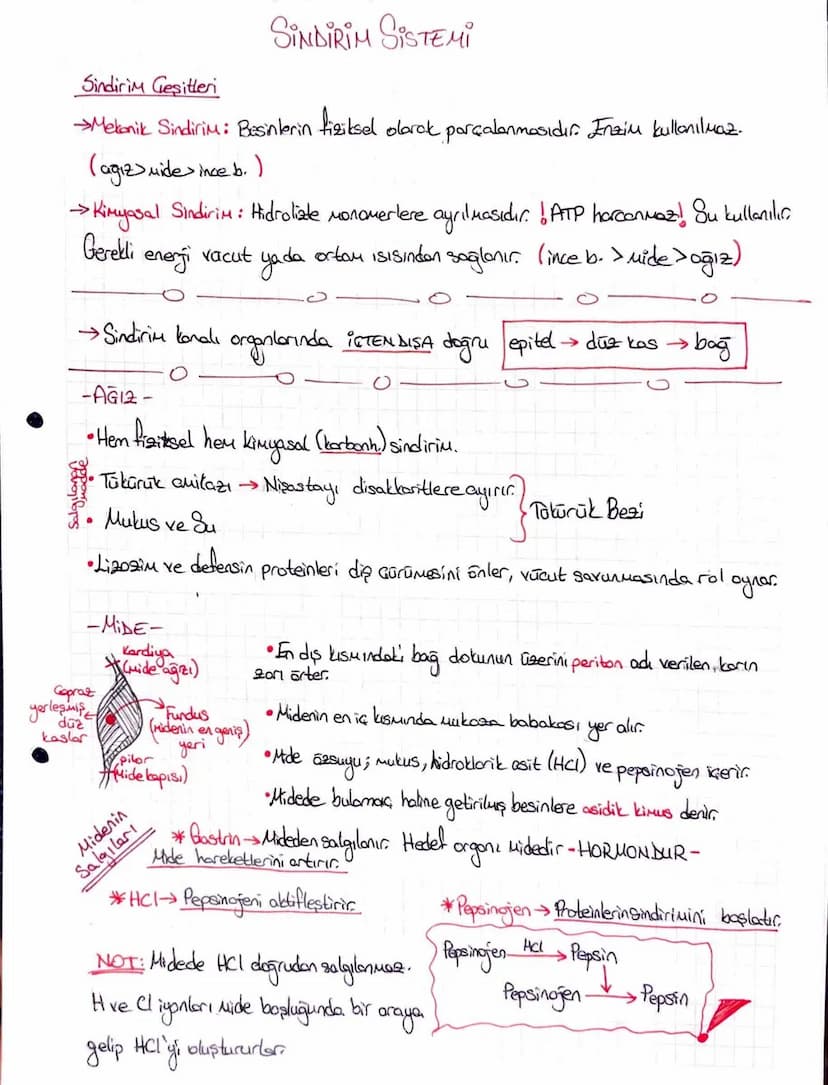 SİNDİRİM SİSTEMİ
Sindirim Çeşitleri
→Mekanik Sindirim: Besinlerin fiziksel olarak parçalanmasıdır. Enzim kullanılmaz.
(ağız>mide>ince b.)
→Kimyasal Sindirim: Hidrolizle monomerlere ayrılmasıdır. !ATP harcanmaz! Su kullanılır.
Gerekli enerji vücut yada ortam ısısından sağlanır. (ince b. > mide > ağız)
→Sindirim kanalı organlarında İÇTEN DIŞA doğru epitel → düz kas → bağ
-AĞIZ-
•Hem fiziksel hem kimyasal (karbonh.) sindirim.
Salgılanan madde
• Tükürük amilazı → Nişastayı disakkaritlere ayırır.
• Mukus ve Su
Tükürük Bezi
•Lizozim ve defensin proteinleri diş çürümesini önler, vücut savunmasında rol oynar.
-MİDE-
Kardiya
(Mide ağzı)
Çapraz
yerleşmiş
düz
kaslar
Fundus
(Midenin en geniş
yeri
pilor
(Mide kapısı)
•En dış kısmındaki bağ dokunun üzerini periton adı verilen, karın
zarı örter.
•Midenin en iç kısmında mukoza babakası yer alır.
•Mide özsuyu; mukus, hidroklorik asit (HCl) ve pepsinojen içerir.
•Midede bulamaç haline getirilmiş besinlere asidik kimus denir.
Midenin
Salgıları
*Gastrin→Mideden salgılanır. Hedef organı midedir -HORMONDUR-
Mide hareketlerini artırır.
*HCl→ Pepsinojeni aktifleştirir.
*Pepsinojen→ Proteinlerin sindirimini başlatır.
Pepsinojen HCl → Pepsin
↓
Pepsinojen → Pepsin
NOT: Midede HCl doğrudan salgılanmaz.
H ve Cl iyonları mide boşluğunda bir araya
gelip HCl'yi oluştururlar.